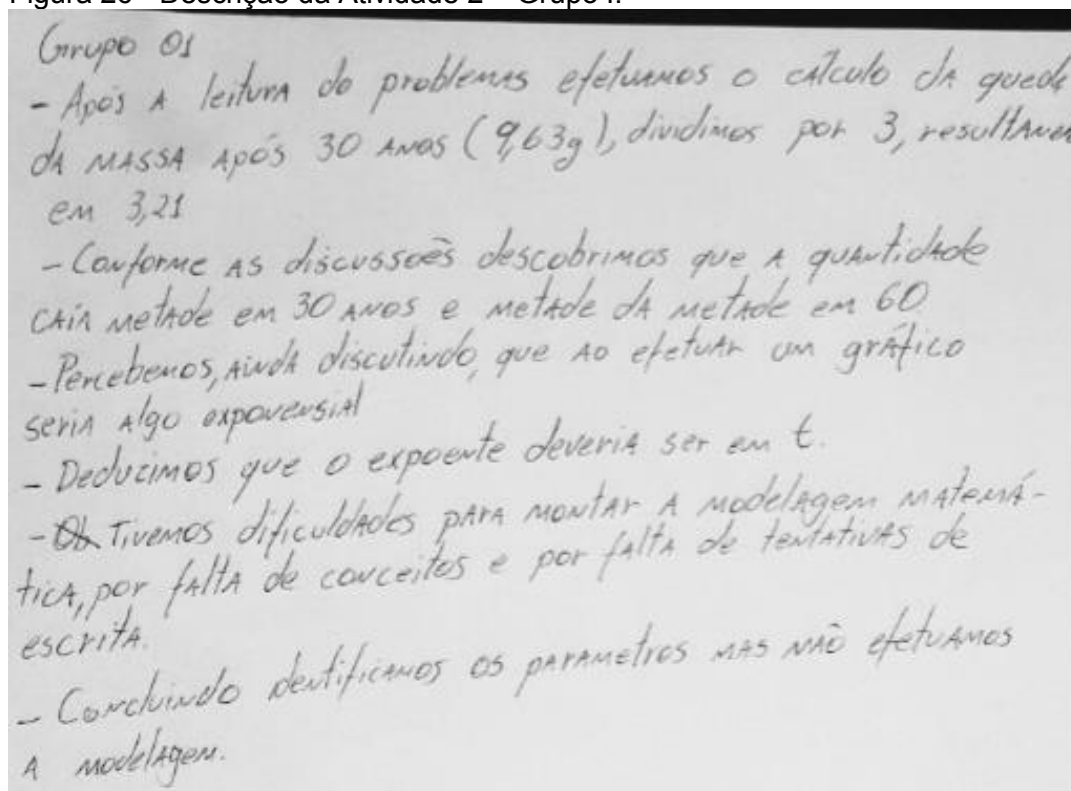 Figura 20 - Descrição da Atividade 2 – Grupo I.
Grupo 01
- Após a leitura do problemas efetuamos o cálculo da queda
da massa após 30 anos (9,63g), dividimos por 3, resultan
em 3,21
- Conforme as discussoẽs descobrimos que a quantidade
caia metade em 30 anos e metade da metade em 60
- Percebemos, ainda discutindo, que ao efetuar um gráfico
seria algo exponensial
- Deducimos que o expoente deveria ser em t.
- Tivemos dificuldades para montar a modelagem matemá-
tica, por falta de conceitos e por falta de tentativas de
escrita.
- Concluindo identificamos os parametros mas não efetuamos
a modelagem.